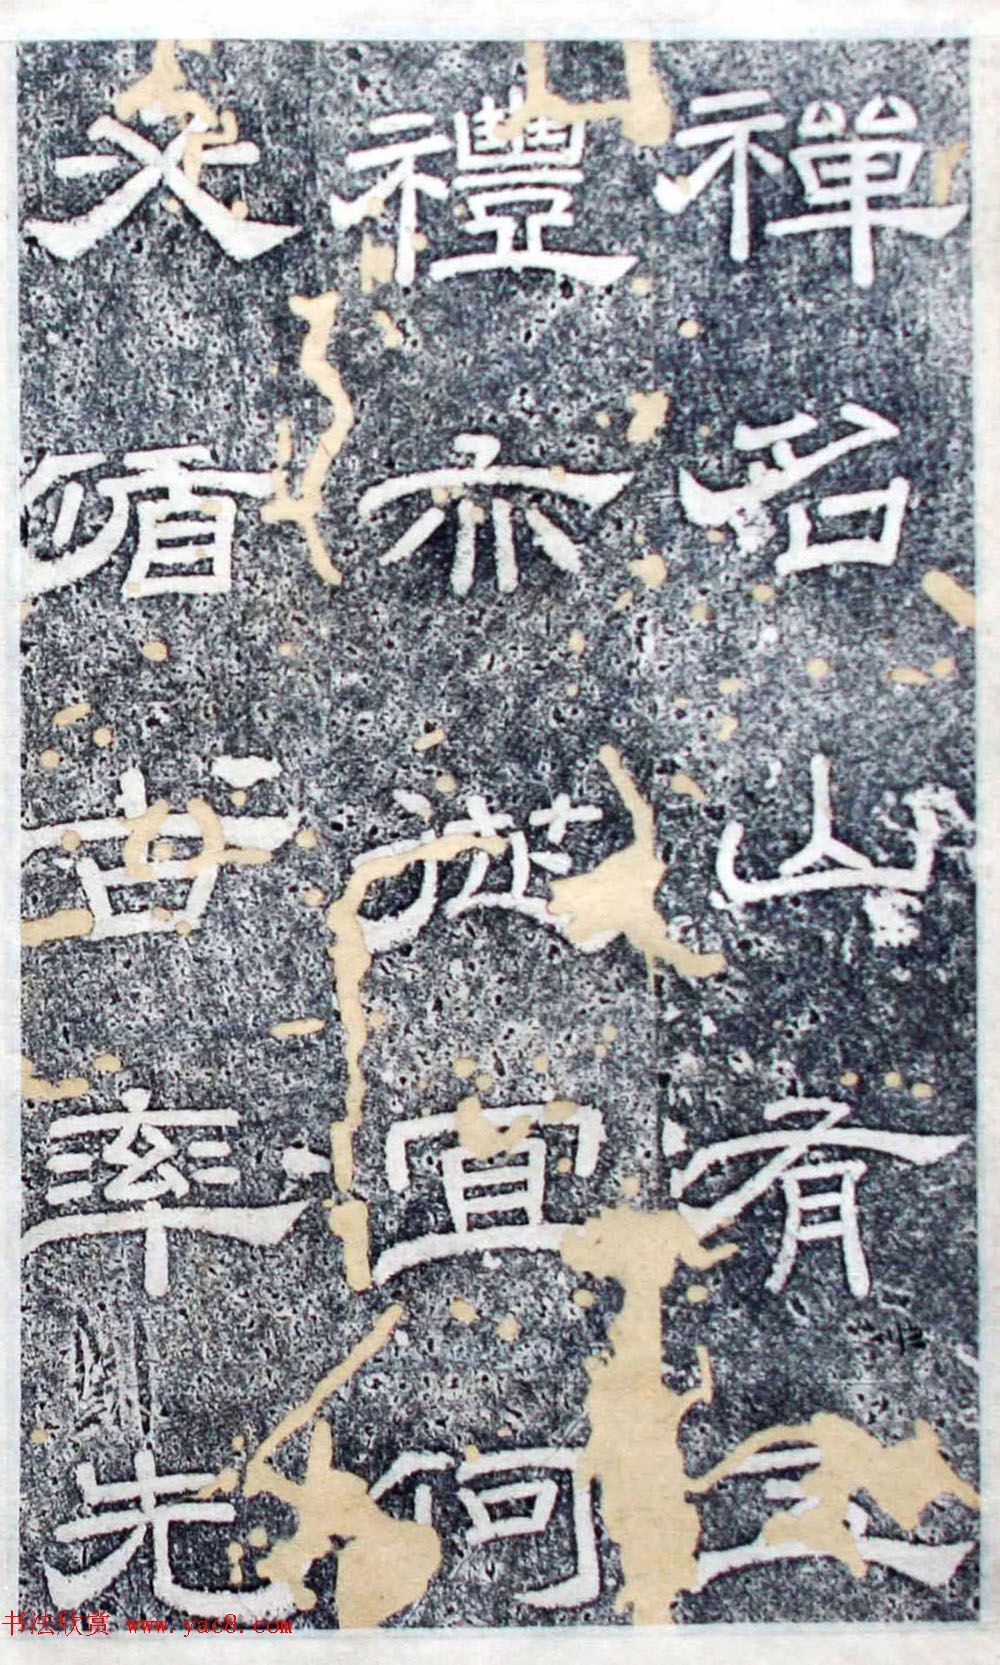 禪名山有
禮亦宜何
文循古率先
书法欣赏 www.yac8.com